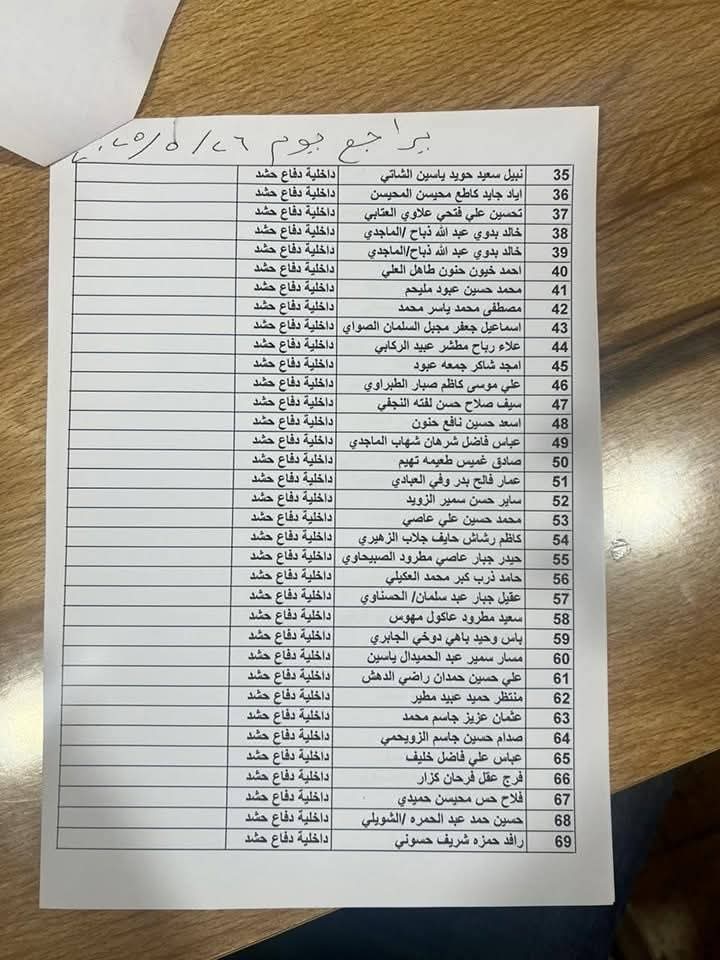 يراجع يوم ٢٠٢٥/٥/٢٦
35 نبيل سعيد حويد ياسين الشاتي داخلية دفاع حشد
36 اياد جايد كاطع محيسن المحيسن داخلية دفاع حشد
37 تحسين علي فتحي علاوي العتابي داخلية دفاع حشد
38 خالد بدوي عبد الله ذباح /الماجدي داخلية دفاع حشد
39 خالد بدوي عبد الله ذباح/الماجدي داخلية دفاع حشد
40 احمد خيون حنون طاهل العلي داخلية دفاع حشد
41 محمد حسين عبود مليحم داخلية دفاع حشد
42 مصطفى محمد ياسر محمد داخلية دفاع حشد
43 اسماعيل جعفر مجبل السلمان الصواي داخلية دفاع حشد
44 علاء رباح مطشر عبيد الركابي داخلية دفاع حشد
45 امجد شاكر جمعه عبود داخلية دفاع حشد
46 علي موسى كاظم صبار الطبراوي داخلية دفاع حشد
47 سيف صلاح حسن لفته النجفي داخلية دفاع حشد
48 اسعد حسين نافع حنون داخلية دفاع حشد
49 عباس فاضل شرهان شهاب الماجدي داخلية دفاع حشد
50 صادق غميس طعيمه تهيم داخلية دفاع حشد
51 عمار فالح بدر وفي العبادي داخلية دفاع حشد
52 ساير حسن سمير الزويد داخلية دفاع حشد
53 محمد حسين علي عاصي داخلية دفاع حشد
54 كاظم رشاش حايف جلاب الزهيري داخلية دفاع حشد
55 حيدر جبار عاصي مطرود الصبيحاوي داخلية دفاع حشد
56 حامد ذرب كبر محمد العكيلي داخلية دفاع حشد
57 عقيل جبار عبد سلمان/ الحسناوي داخلية دفاع حشد
58 سعيد مطرود عاكول مهوس داخلية دفاع حشد
59 باس وحيد باهي دوخي الجابري داخلية دفاع حشد
60 مسار سمير عبد الحميدال ياسين داخلية دفاع حشد
61 علي حسين حمدان راضي الدهش داخلية دفاع حشد
62 منتظر حميد عبيد مطير داخلية دفاع حشد
63 عثمان عزيز جاسم محمد داخلية دفاع حشد
64 صدام حسين جاسم الزويحمي داخلية دفاع حشد
65 عباس علي فاضل خليف داخلية دفاع حشد
66 فرج عقل فرحان كزار داخلية دفاع حشد
67 فلاح حس محيسن حميدي داخلية دفاع حشد
68 حسين حمد عبد الحمره /الشويلي داخلية دفاع حشد
69 رافد حمزه شريف حسوني داخلية دفاع حشد